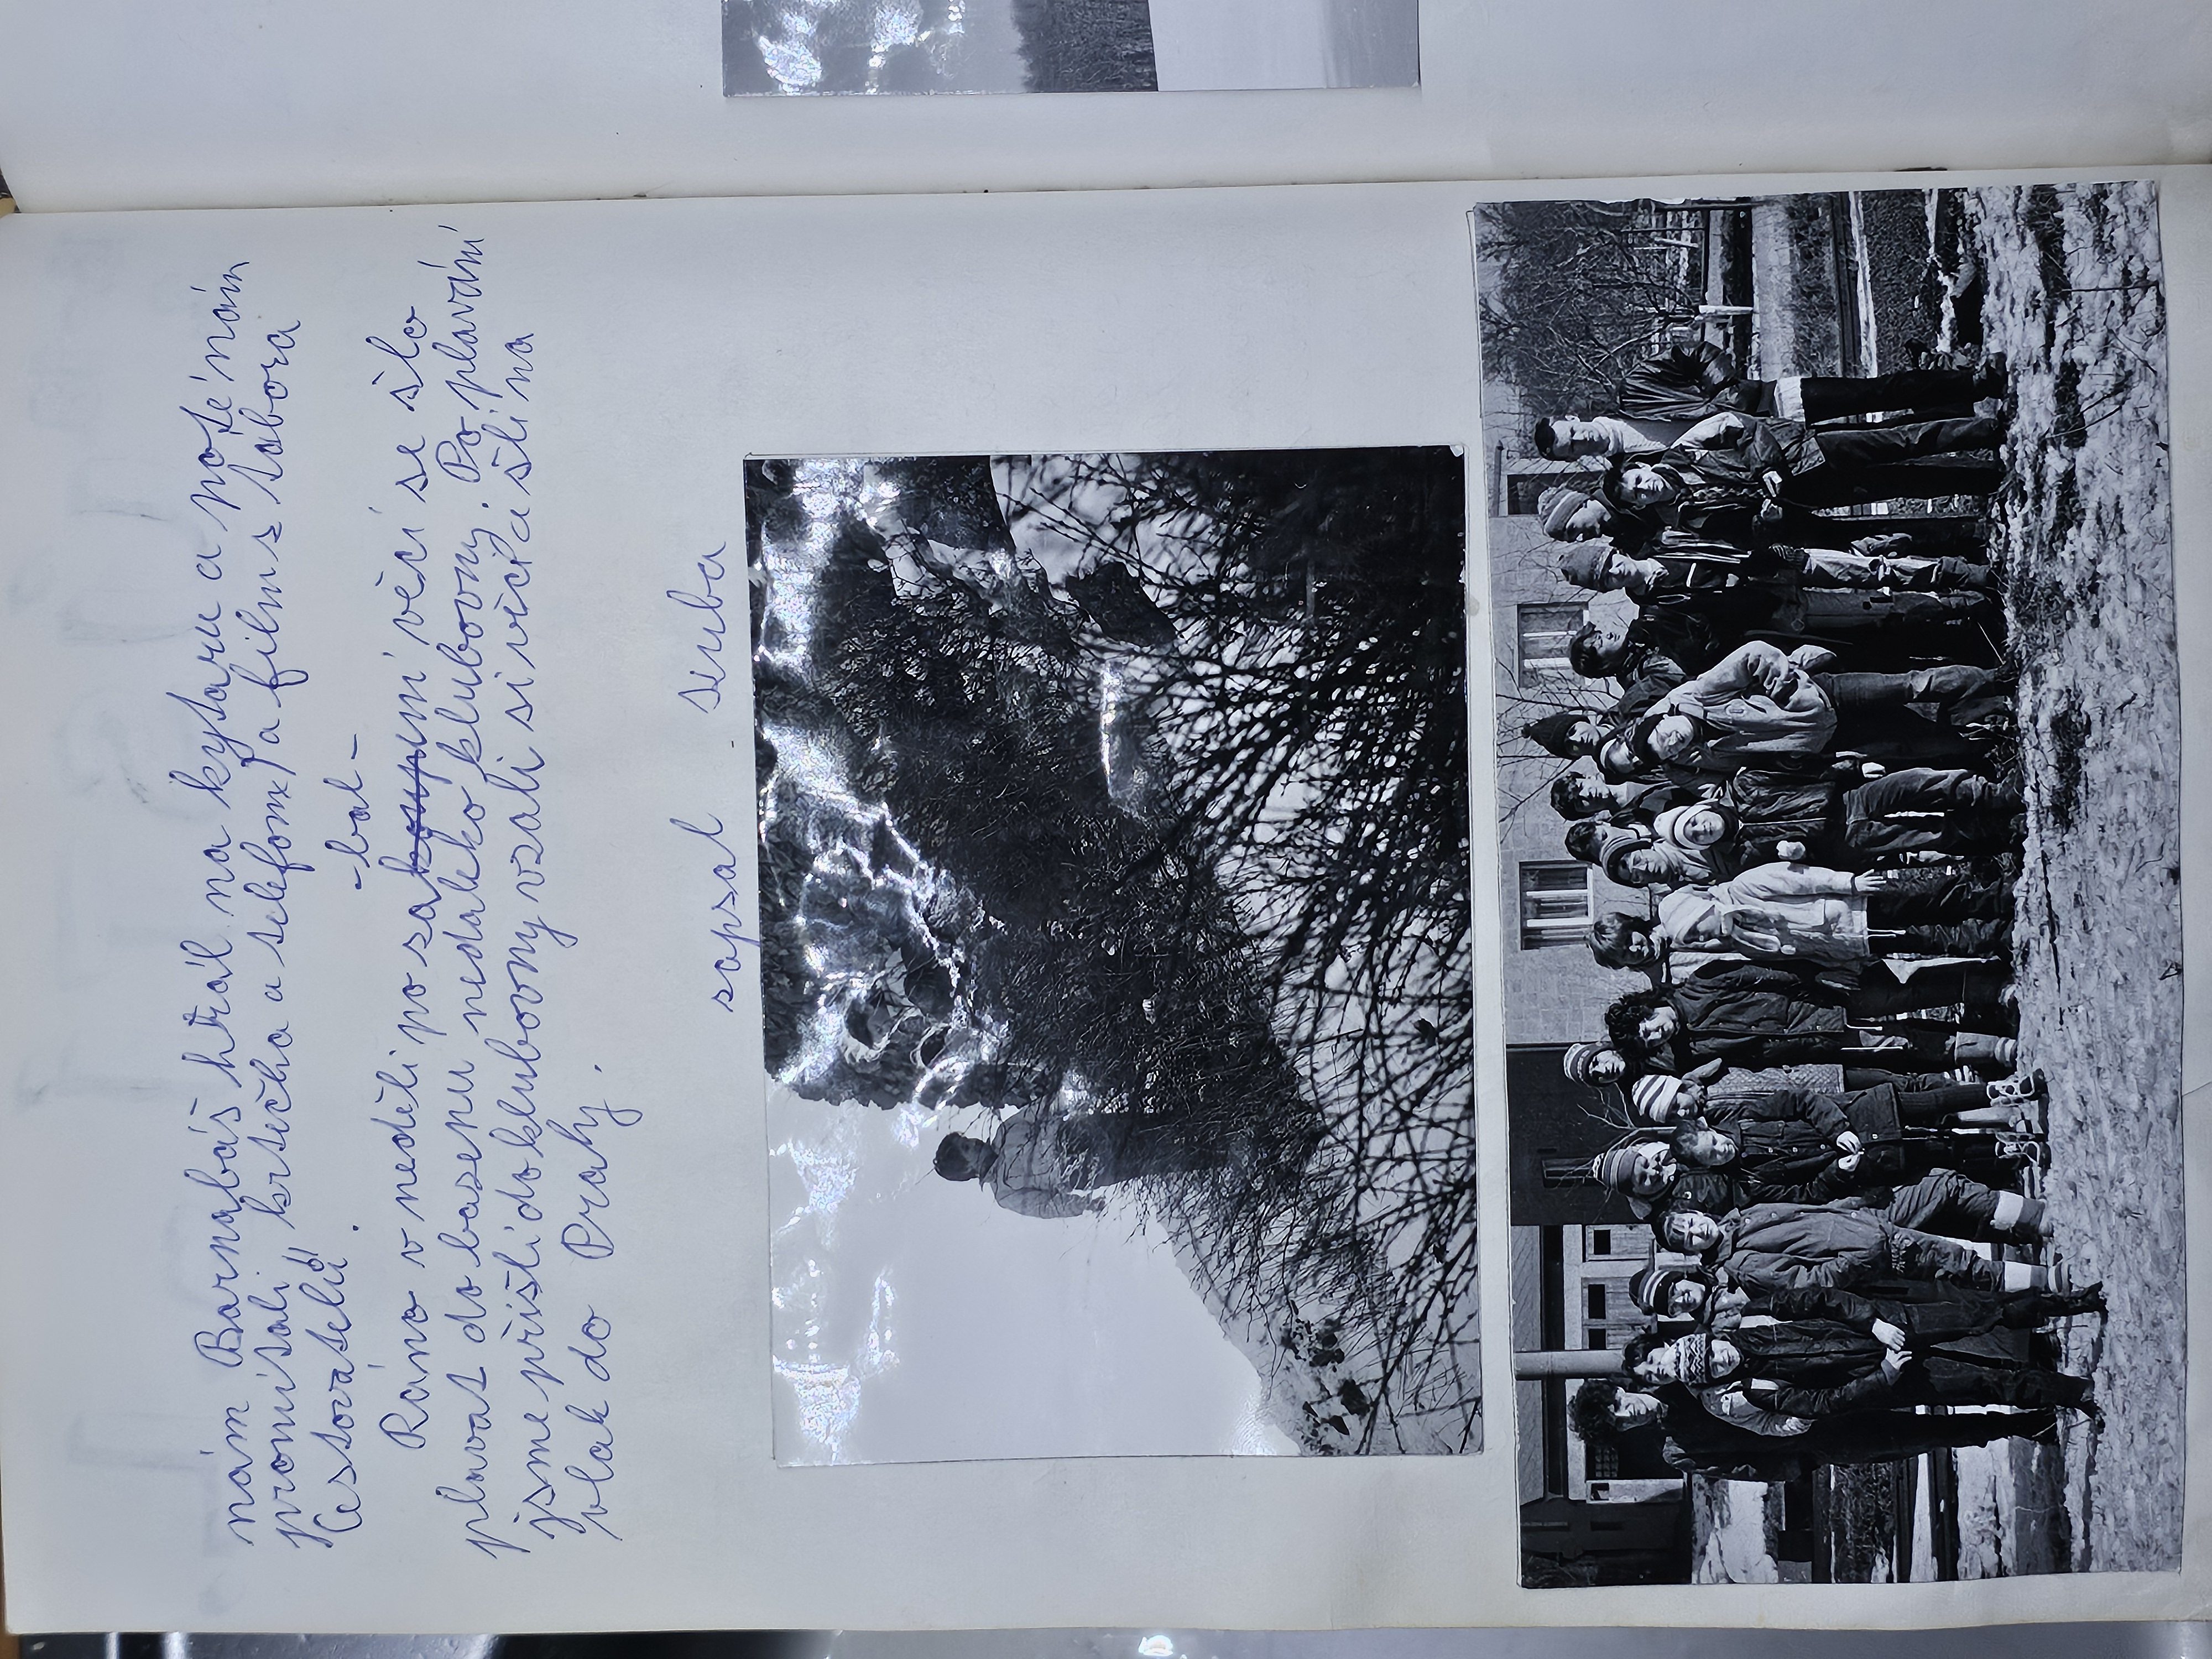 nám Barnabáš hrál na kytaru a poté nám
promítali „krtečka a telefon" a film z tábora
Cestovatelů.
-bal-
Ráno v neděli po zaboupum věcí se šlo
plavat do bazenu nedaleko klubovny. Po plavání
jsme přišli do klubovny vzali si věci a šli na
vlak do Prahy.
zapsal senba